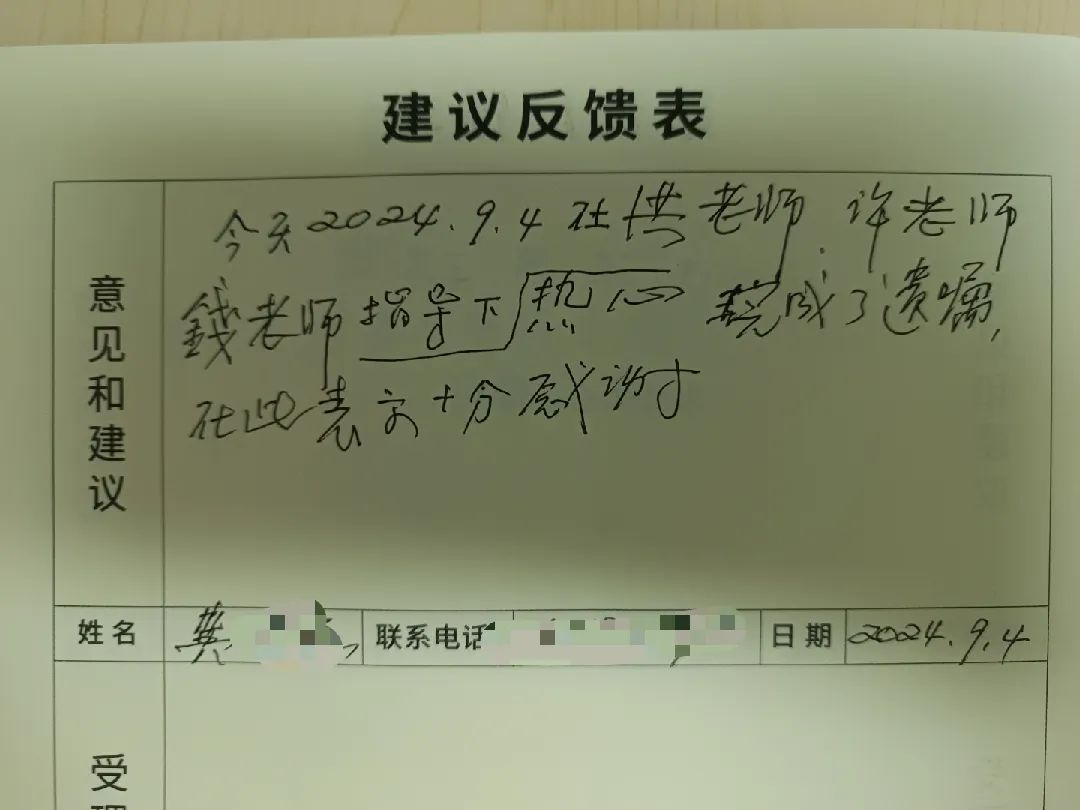 建议反馈表
意见和建议
今天2024.9.4在洪老师.许老师
錢老师指导下热心完成了遗嘱,
在此表示十分感谢
姓名
联系电话
日期
2024.9.4
受理